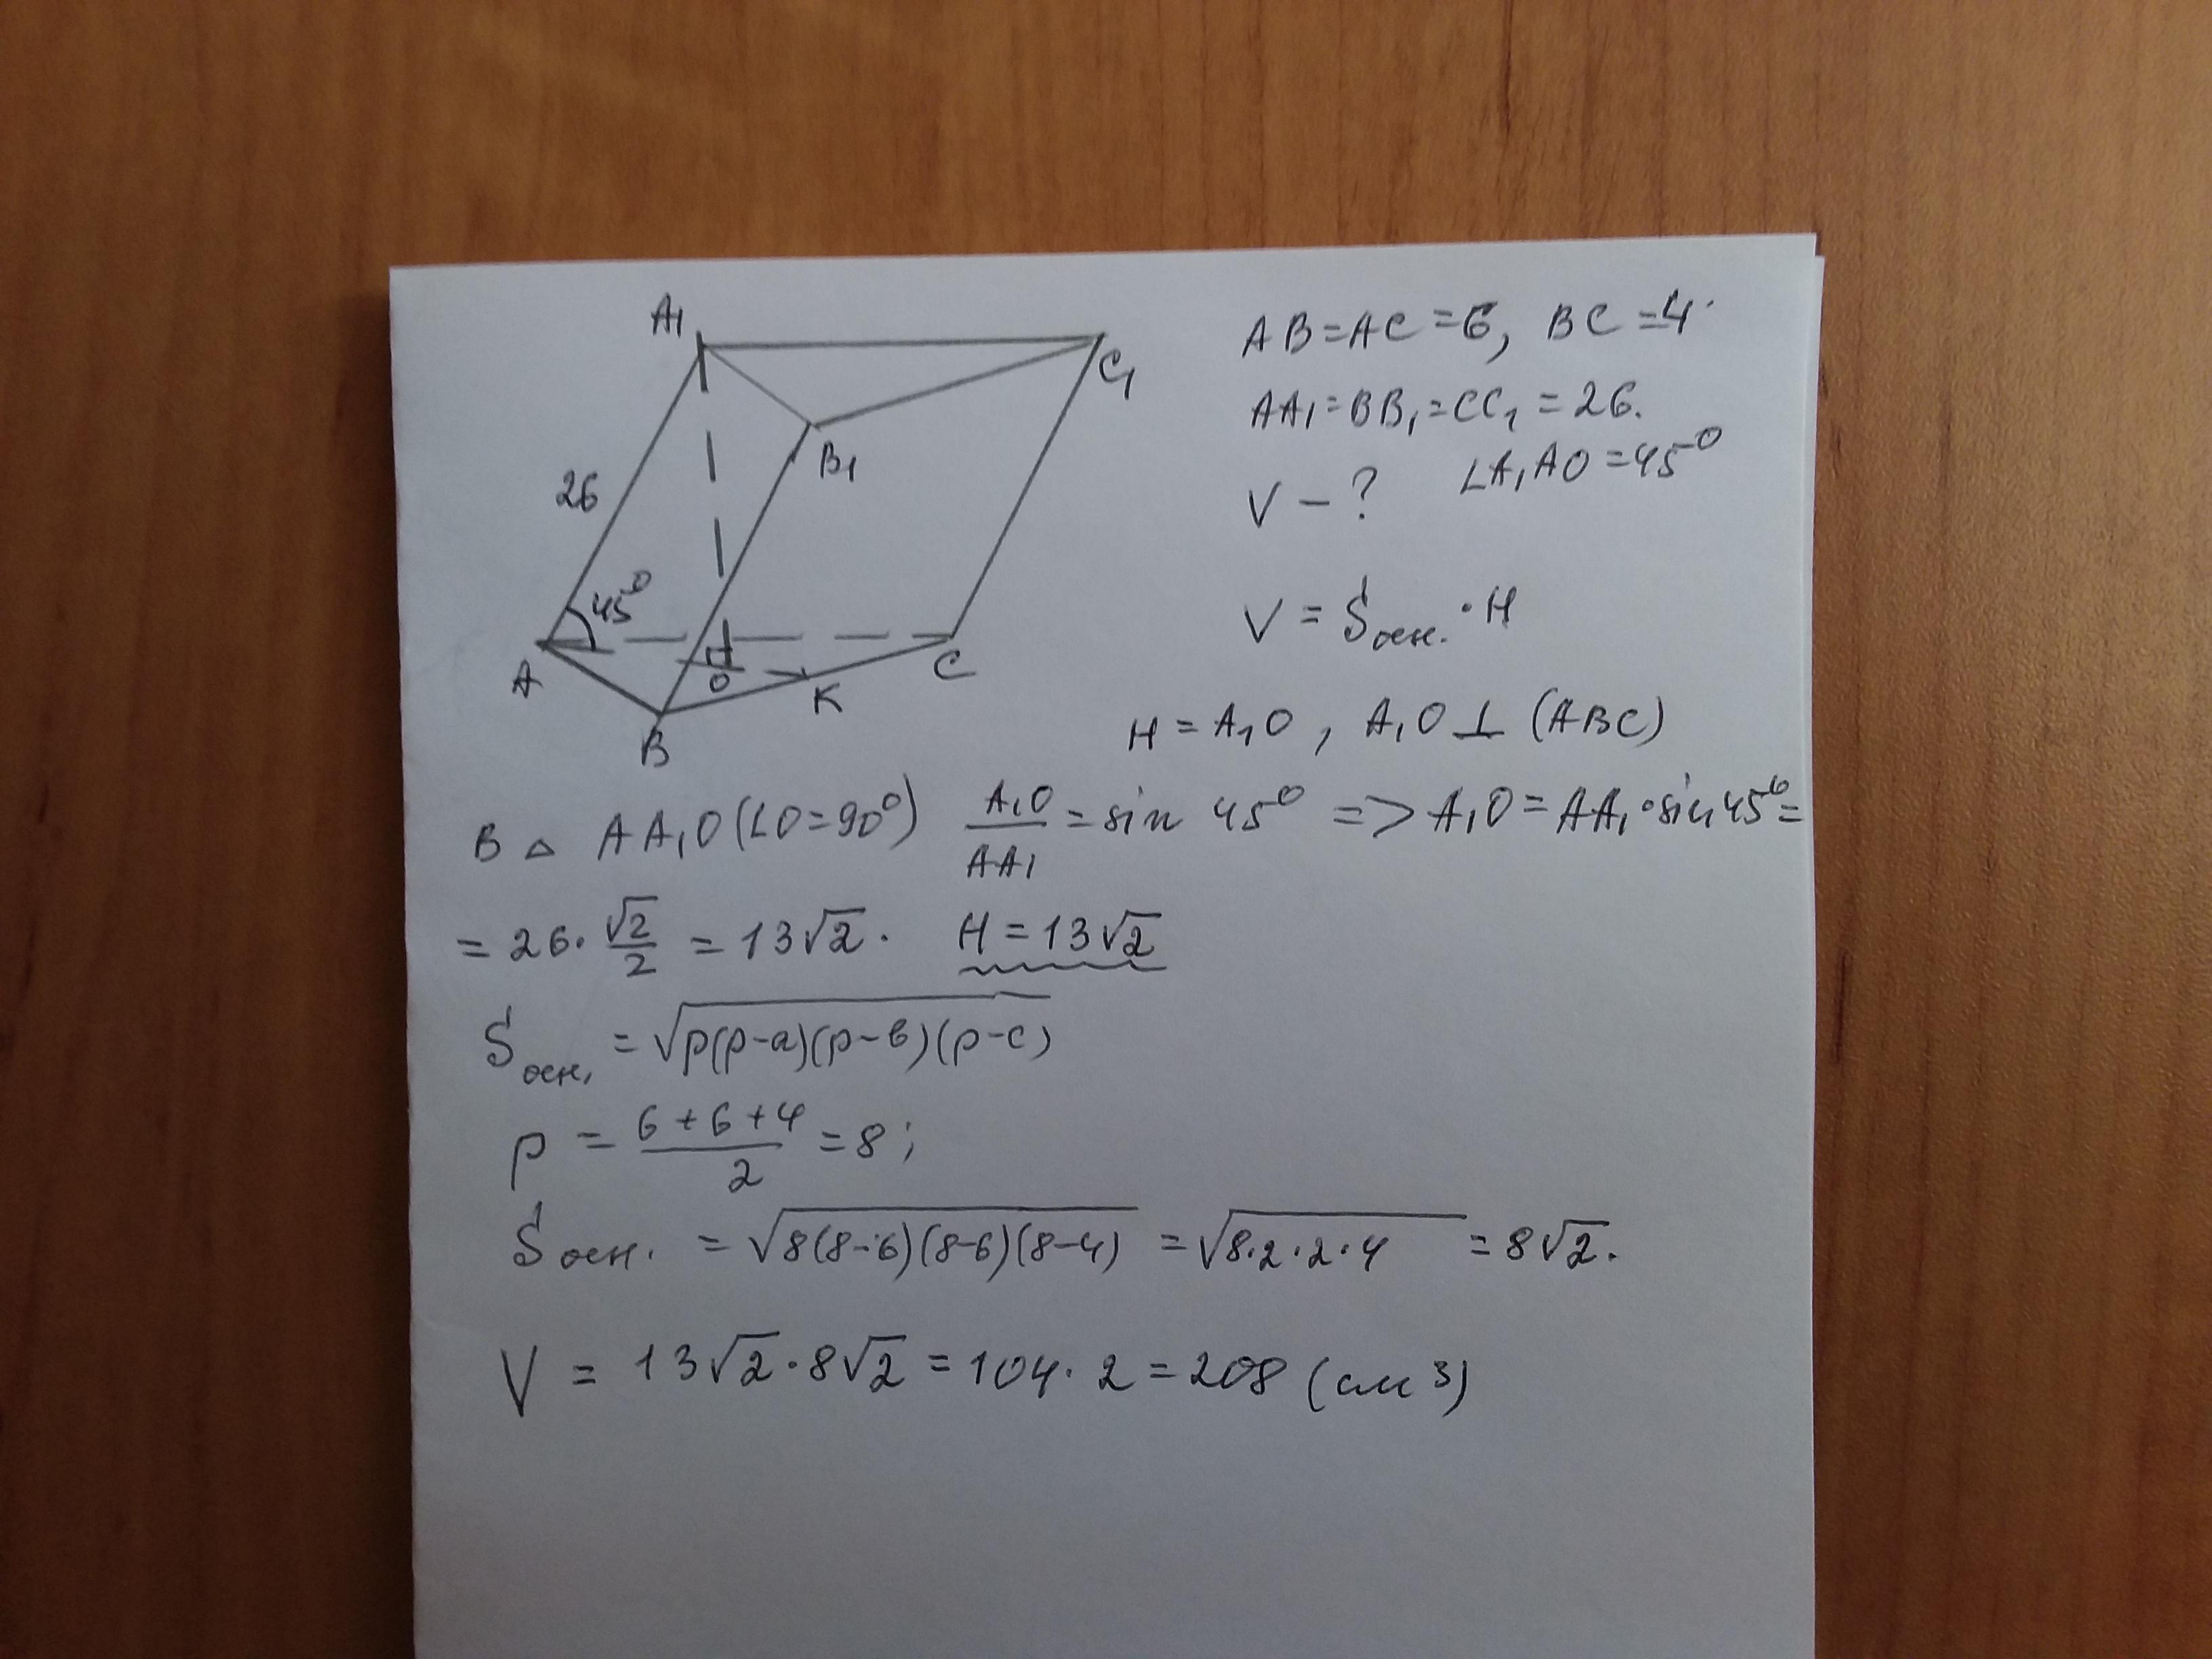 A1
C1
B1
26
45°
A
O
K
C
B
AB=AC=6, BC=4.
AA1=BB1=CC1=26.
V-? ∠A1AO=45°
V=Sосн.·H
H=A1O, A1O⊥(ABC)
В △ AA1O(∠O=90°) A1O/AA1=sin 45° => A1O=AA1·sin45°=
=26·√2/2=13√2. H=13√2
Sосн.=√p(p-a)(p-в)(p-c)
p=6+6+4/2=8;
Sосн.=√8(8-6)(8-6)(8-4)=√8·2·2·4=8√2.
V=13√2·8√2=104·2=208(см³)